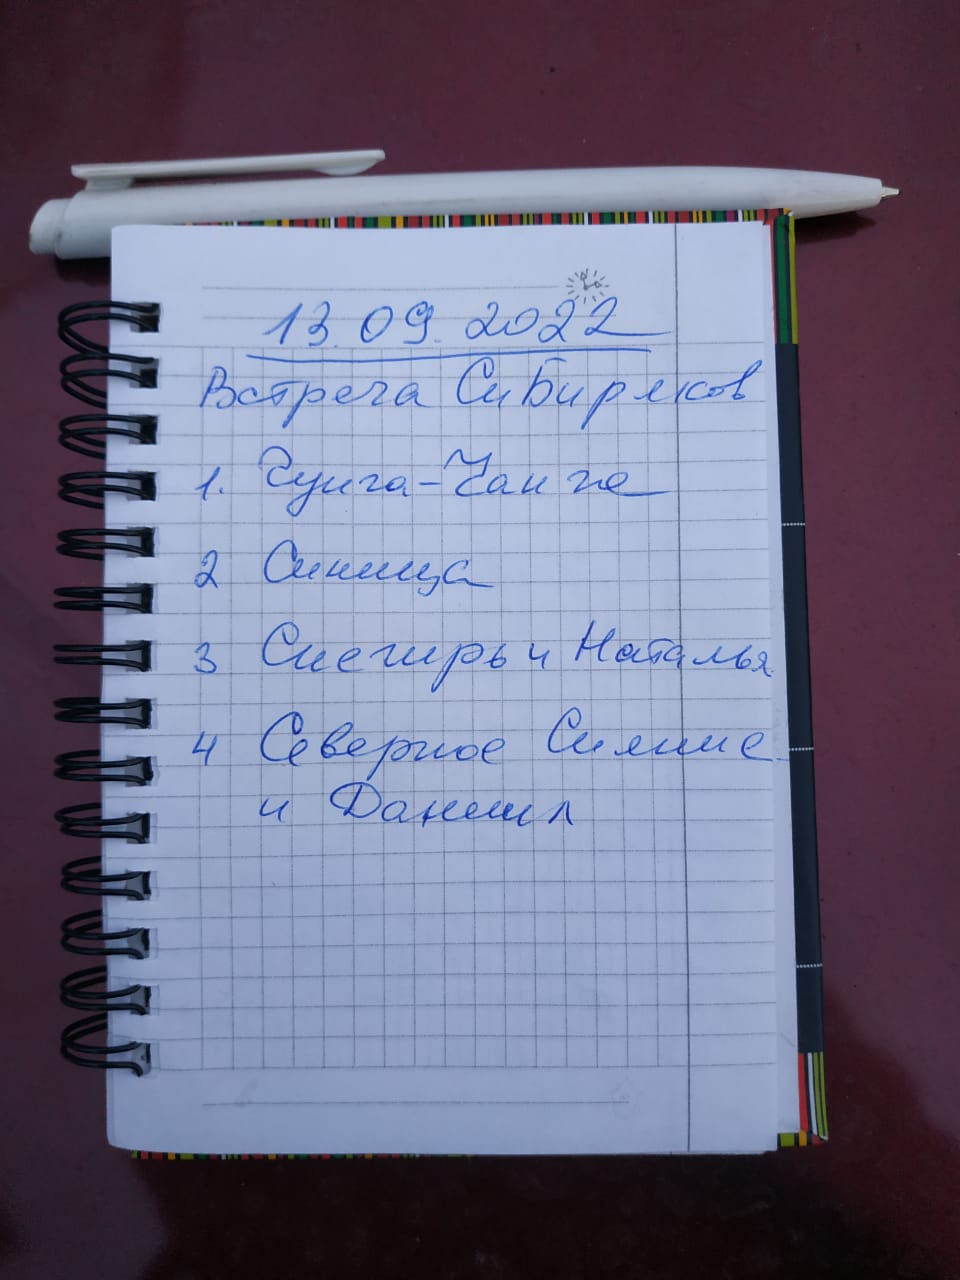 13.09.2022
Встреча СиБиряков
1. Гунга-Чанге
2 Синица
3 Снегирь и Наталья
4 Северное Сияние
и Даниил